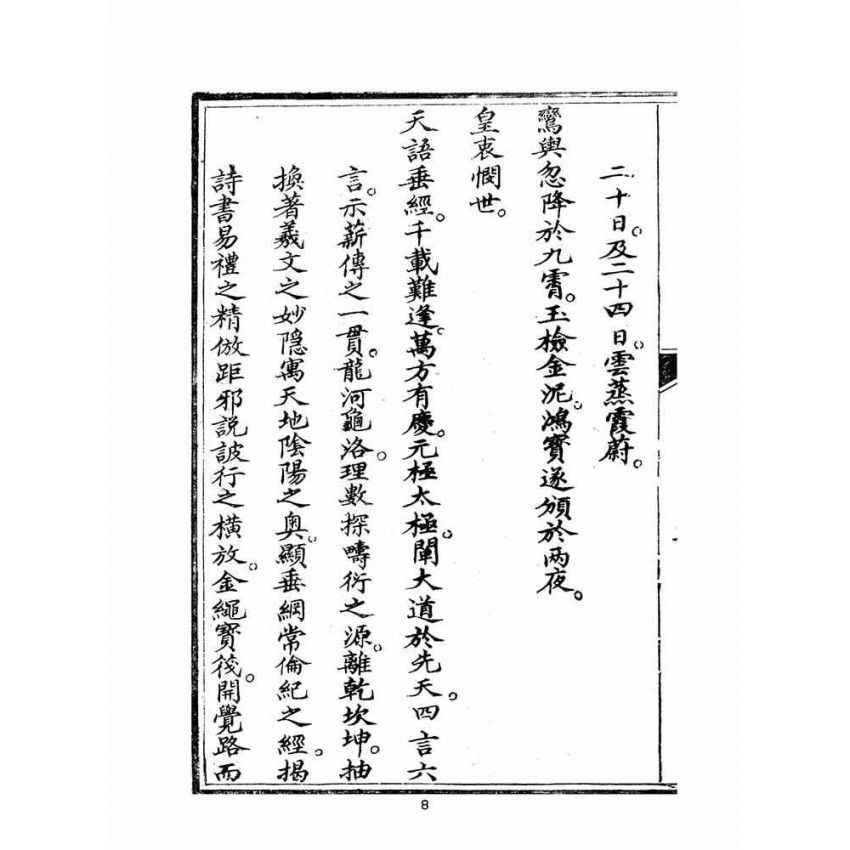 二十日。及二十四日。雲蒸霞蔚。
鸞輿忽降於九霄。玉檢金泥。鴻寶遂頒於兩夜。
皇衷憫世。
天語垂經。千載難逢。萬方有慶。元極太極。闡大道於先天。四言六
言。示薪傳之一貫。龍河龜洛。理數探疇衍之源。離乾坎坤。抽
換著羲文之妙。隐寓天地陰陽之奥。顯垂綱常倫紀之經。揭
詩書易禮之精。倣距邪説詖行之横放。金繩寶筏。開覺路而
8